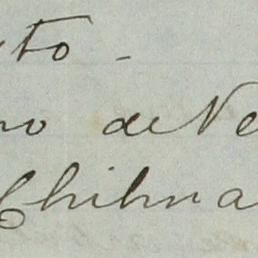 to -
no de Ne
Chihua